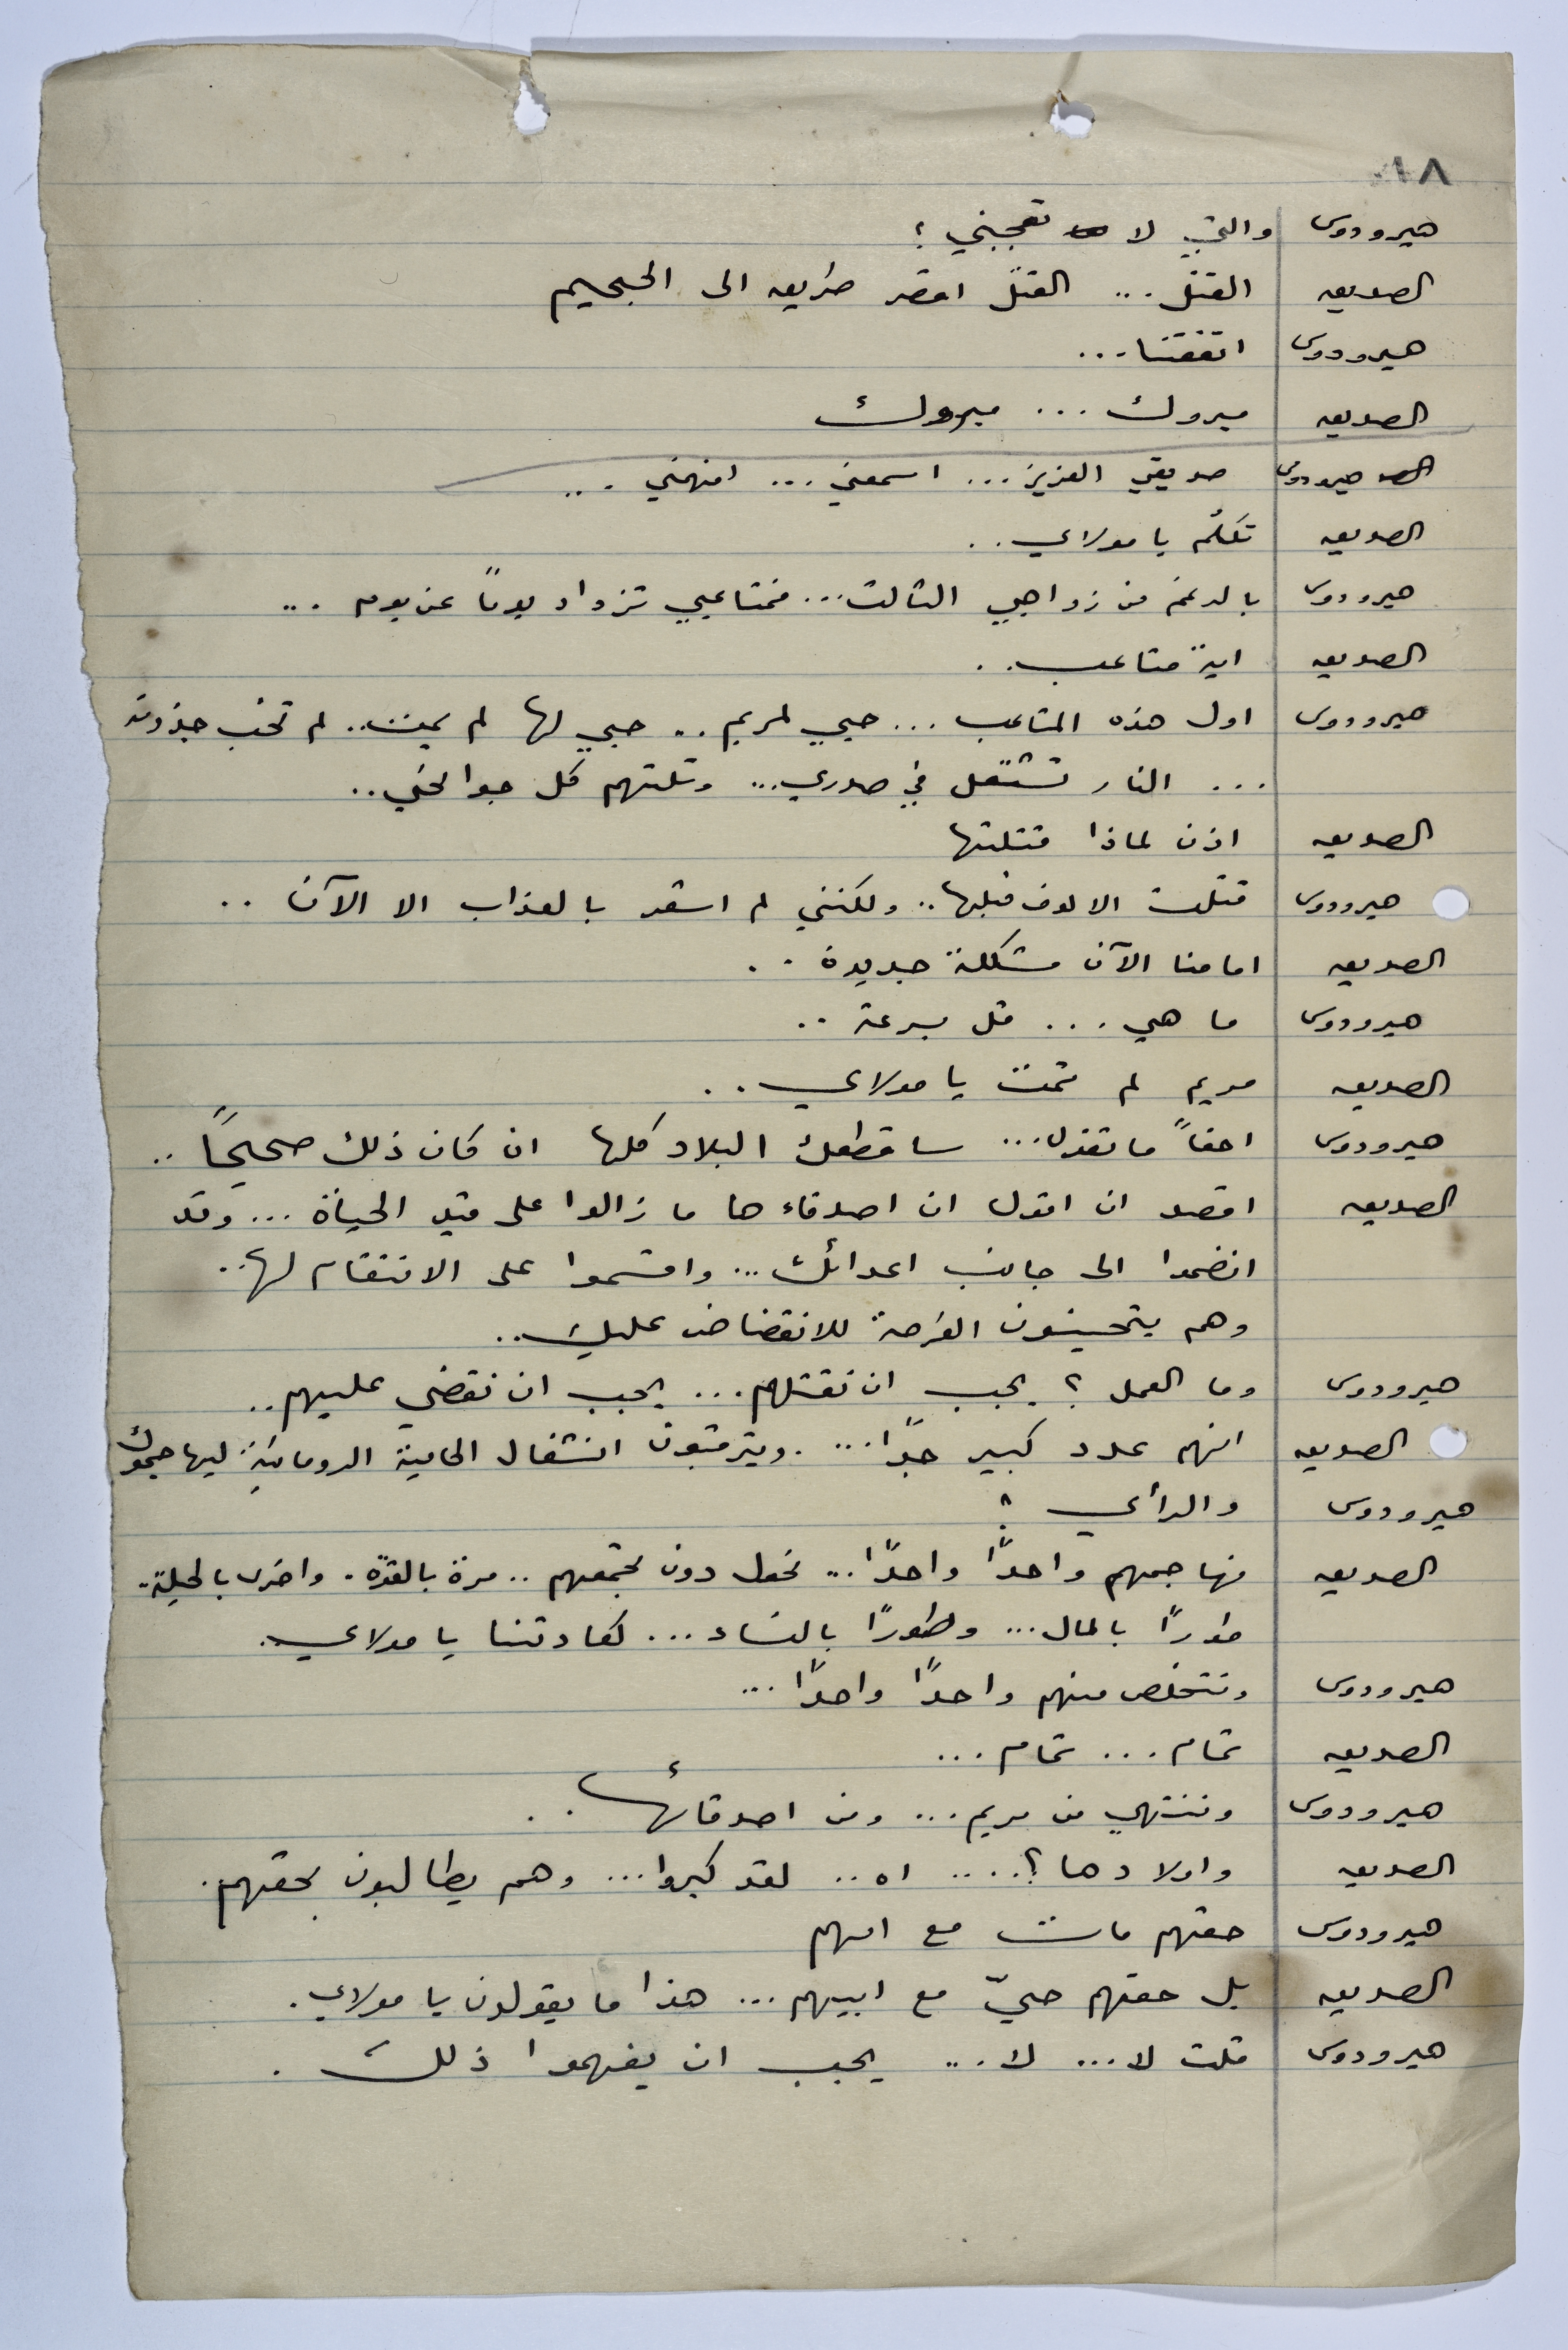 هيرودوس والتي لا تعجبني ؟
الصديق القتل ... القتل اقصر طريق الى الجحيم
هيرودوس اتفقنا ...
الصديق مبروك ... مبروك
هيرودوس صديقي العزيز ... اسمعني ... افهمني ...
الصديق تكلّم يا مولاي ..
هيرودوس بالرغم من زواجي الثالث ... فمتاعبي تزداد يوماً عن يوم ...
الصديق اية متاعب ..
هيرودوس اول هذه المتاعب ... حبي لمريم .. حبي لها لم يمت .. لم تخب جذوته
... النار تشتعل في صدري ... وتلتهم كل جوانحي ..
الصديق اذن لماذا قتلتها
هيرودوس قتلت الالوف قبلها .. ولكنني لم اشعر بالعذاب الا الآن ..
الصديق امامنا الآن مشكلة جديدة ..
هيرودوس ما هي ... قل بسرعة ..
الصديق مريم لم تمت يا مولاي ..
هيرودوس احقاً ما تقول ... ساقطعك البلاد كلها ان كان ذلك صحيحاً ..
الصديق اقصد ان اقول ان اصدقاءها ما زالوا على قيد الحياة ... وقد
انضموا الى جانب اعدائك ... واقسموا على الانتقام لها ..
وهم يتحينون الفرصة للانقضاض عليك ..
هيرودوس وما العمل ؟ يجب ان نقتلهم ... يجب ان نقضي عليهم ..
الصديق انهم عدد كبير جداً ... ويترقبون انشغال الحامية الرومانية ليهاجموك
هيرودوس والرأي ؟
الصديق نهاجمهم واحداً واحداً ... نحول دون تجمعهم .. مرة بالقوة . واخرى بالحيلة .
طوراً بالمال ... وطوراً بالنساء ... كعادتنا يا مولاي .
هيرودوس ونتخلص منهم واحداً واحداً ...
الصديق تمام ... تمام ...
هيرودوس وننتهي من مريم ... ومن اصدقائها ..
الصديق واولادها ؟ .... اه .. لقد كبروا ... وهم يطالبون بحقهم .
هيرودوس حقهم مات مع امهم
الصديق بل حقهم حيّ مع ابيهم ... هذا ما يقولون يا مولاي .
هيرودوس قلت لا ... لا ... يجب ان يفهموا ذلك .